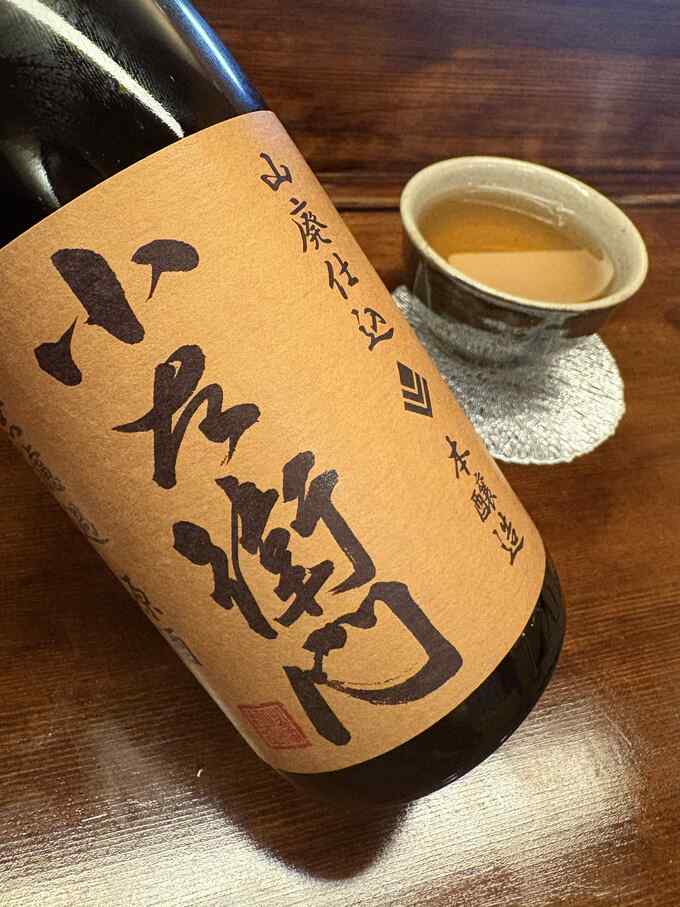 山廃仕込
本醸造
小左衛門